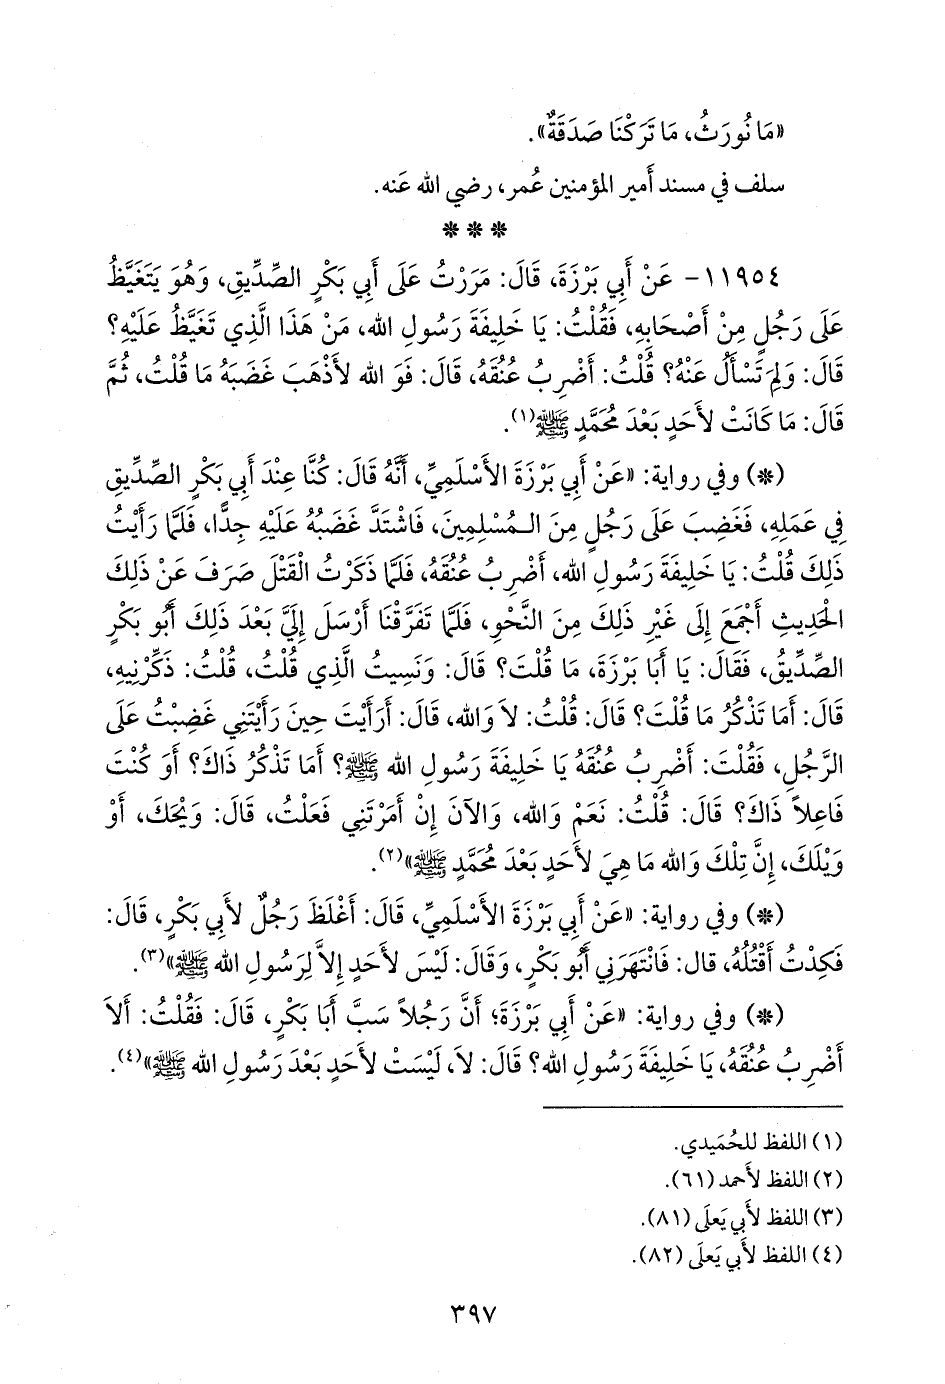 «مَا نُورَثُ، مَا تَرَكْنَا صَدَقَةٌ».
سلف في مسند أَمير المؤمنين عُمر، رضي الله عَنه.
* * *
١١٩٥٤- عَنْ أَبِي بَرْزَةَ، قَالَ: مَرَرْتُ عَلَى أَبِي بَكْرٍ الصِّدِّيقِ، وَهُوَ يَتَغَيَّظُ
عَلَى رَجُلٍ مِنْ أَصْحَابِهِ، فَقُلْتُ: يَا خَلِيفَةَ رَسُولِ الله، مَنْ هَذَا الَّذِي تَغَيَّظُ عَلَيْهِ؟
قَالَ: وَلِمَ تَسْأَلُ عَنْهُ؟ قُلْتُ: أَضْرِبُ عُنُقَهُ، قَالَ: فَوَ الله لأَذْهَبَ غَضَبَهُ مَا قُلْتُ، ثُمَّ
قَالَ: مَا كَانَتْ لأَحَدٍ بَعْدَ مُحَمَّدٍ ﷺ(١).
(*) وفي رواية: «عَنْ أَبِي بَرْزَةَ الأَسْلَمِيِّ، أَنَّهُ قَالَ: كُنَّا عِنْدَ أَبِي بَكْرٍ الصِّدِّيقِ
فِي عَمَلِهِ، فَغَضِبَ عَلَى رَجُلٍ مِنَ الْمُسْلِمِينَ، فَاشْتَدَّ غَضَبُهُ عَلَيْهِ جِدًّا، فَلَمَّا رَأَيْتُ
ذَلِكَ قُلْتُ: يَا خَلِيفَةَ رَسُولِ الله، أَضْرِبُ عُنُقَهُ، فَلَمَّا ذَكَرْتُ الْقَتْلَ صَرَفَ عَنْ ذَلِكَ
الْحَدِيثِ أَجْمَعَ إِلَى غَيْرِ ذَلِكَ مِنَ النَّحْوِ، فَلَمَّا تَفَرَّقْنَا أَرْسَلَ إِلَيَّ بَعْدَ ذَلِكَ أَبُو بَكْرٍ
الصِّدِّيقُ، فَقَالَ: يَا أَبَا بَرْزَةَ، مَا قُلْتَ؟ قَالَ: وَنَسِيتُ الَّذِي قُلْتُ، قُلْتُ: ذَكِّرْنِيهِ،
قَالَ: أَمَا تَذْكُرُ مَا قُلْتَ؟ قَالَ: قُلْتُ: لاَ وَالله، قَالَ: أَرَأَيْتَ حِينَ رَأَيْتَنِي غَضِبْتُ عَلَى
الرَّجُلِ، فَقُلْتَ: أَضْرِبُ عُنُقَهُ يَا خَلِيفَةَ رَسُولِ الله ﷺ؟ أَمَا تَذْكُرُ ذَاكَ؟ أَوَ كُنْتَ
فَاعِلاً ذَاكَ؟ قَالَ: قُلْتُ: نَعَمْ وَالله، وَالآنَ إِنْ أَمَرْتَنِي فَعَلْتُ، قَالَ: وَيْحَكَ، أَوْ
وَيْلَكَ، إِنَّ تِلْكَ وَالله مَا هِيَ لأَحَدٍ بَعْدَ مُحَمَّدٍ ﷺ»(٢).
(*) وفي رواية: «عَنْ أَبِي بَرْزَةَ الأَسْلَمِيِّ، قَالَ: أَغْلَظَ رَجُلٌ لأَبِي بَكْرٍ، قَالَ:
فَكِدْتُ أَقْتُلُهُ، قال: فَانْتَهَرَنِي أَبُو بَكْرٍ، وَقَالَ: لَيْسَ لأَحَدٍ إِلاَّ لِرَسُولِ الله ﷺ»(٣).
(*) وفي رواية: «عَنْ أَبِي بَرْزَةَ؛ أَنَّ رَجُلاً سَبَّ أَبَا بَكْرٍ، قَالَ: فَقُلْتُ: أَلاَ
أَضْرِبُ عُنُقَهُ، يَا خَلِيفَةَ رَسُولِ الله؟ قَالَ: لاَ، لَيْسَتْ لأَحَدٍ بَعْدَ رَسُولِ الله ﷺ»(٤).
(١) اللفظ للحُمَيدي.
(٢) اللفظ لأَحمد (٦١).
(٣) اللفظ لأَبي يَعلَى (٨١).
(٤) اللفظ لأَبي يَعلَى (٨٢).
٣٩٧